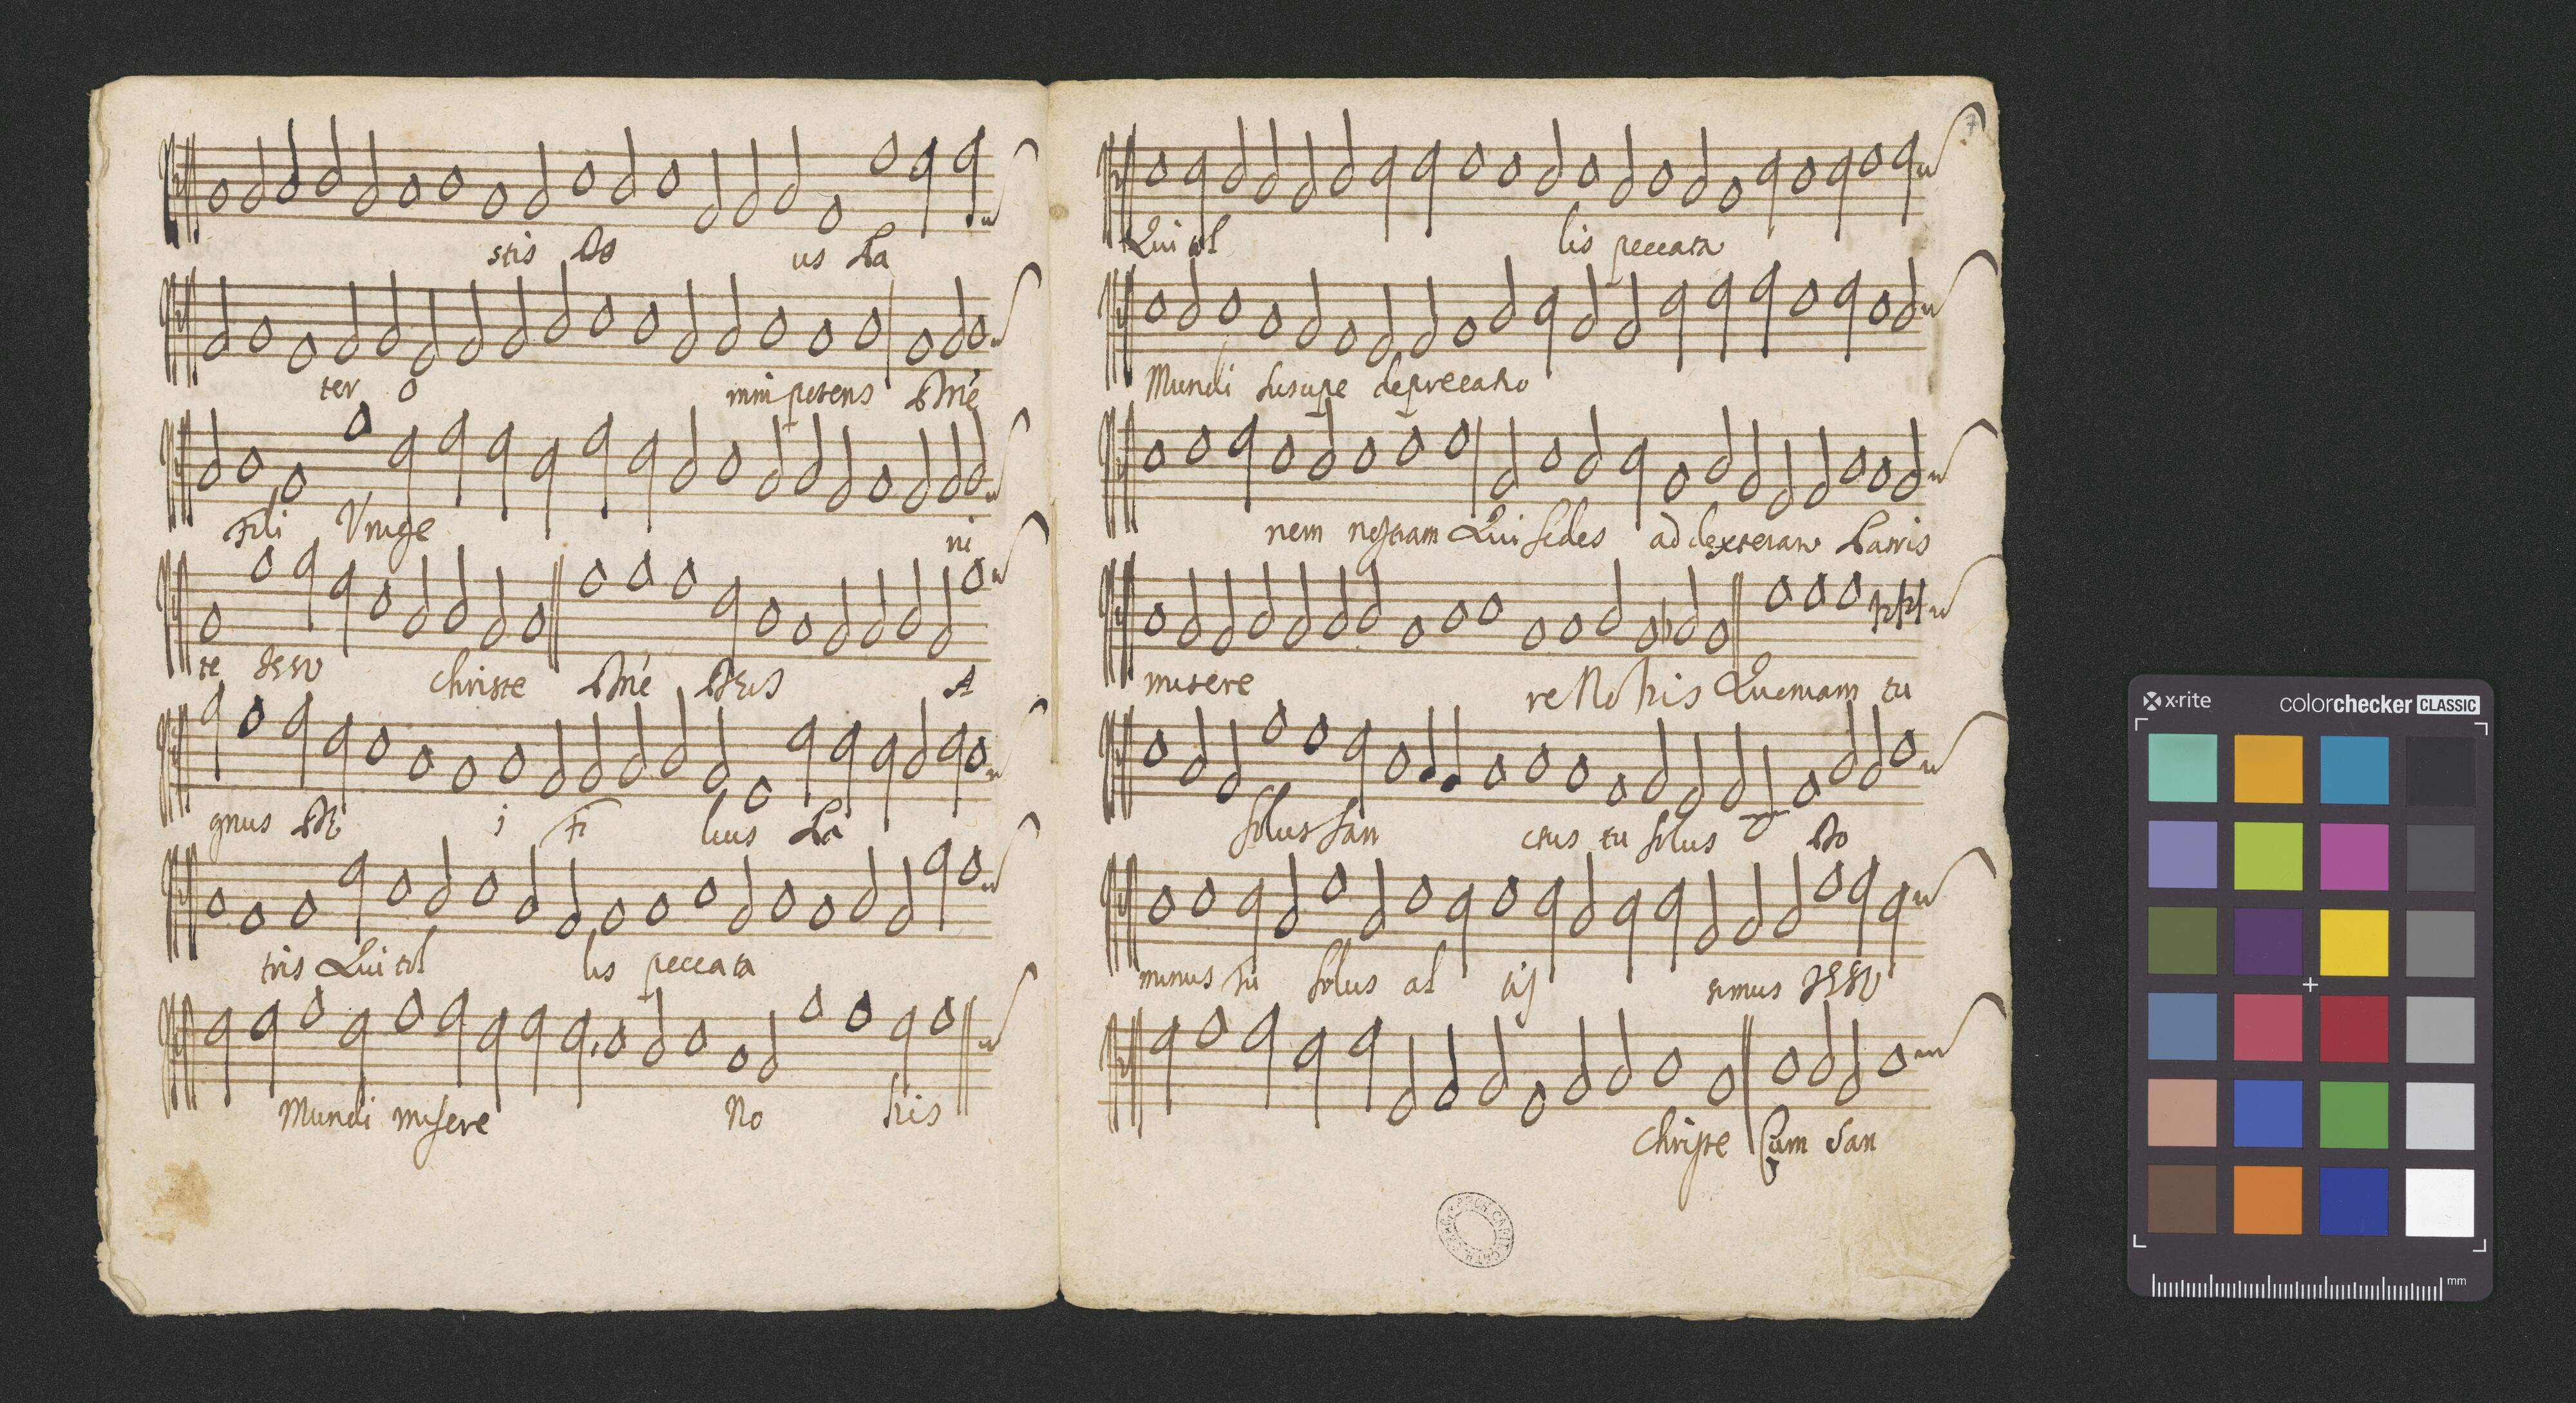 stis Do us Pa
ter o mnipotens Dñe
Fili Vnige ni
te JESU Christe Dñe DEUS A
gnus DEi j Fi lius Pa
tris Qui tol lis peccata
Mundi misere No bis
7
Qui tol lis peccata
Mundi suscipe deprecatio
nem nostram Qui sedes ad dexteram Patris
misere re No bis Quoniam tu
solus San ctus tu solus Do
minus tu solus al tissimus JESU
Christe Cum San
x·rite colorchecker CLASSIC
mm